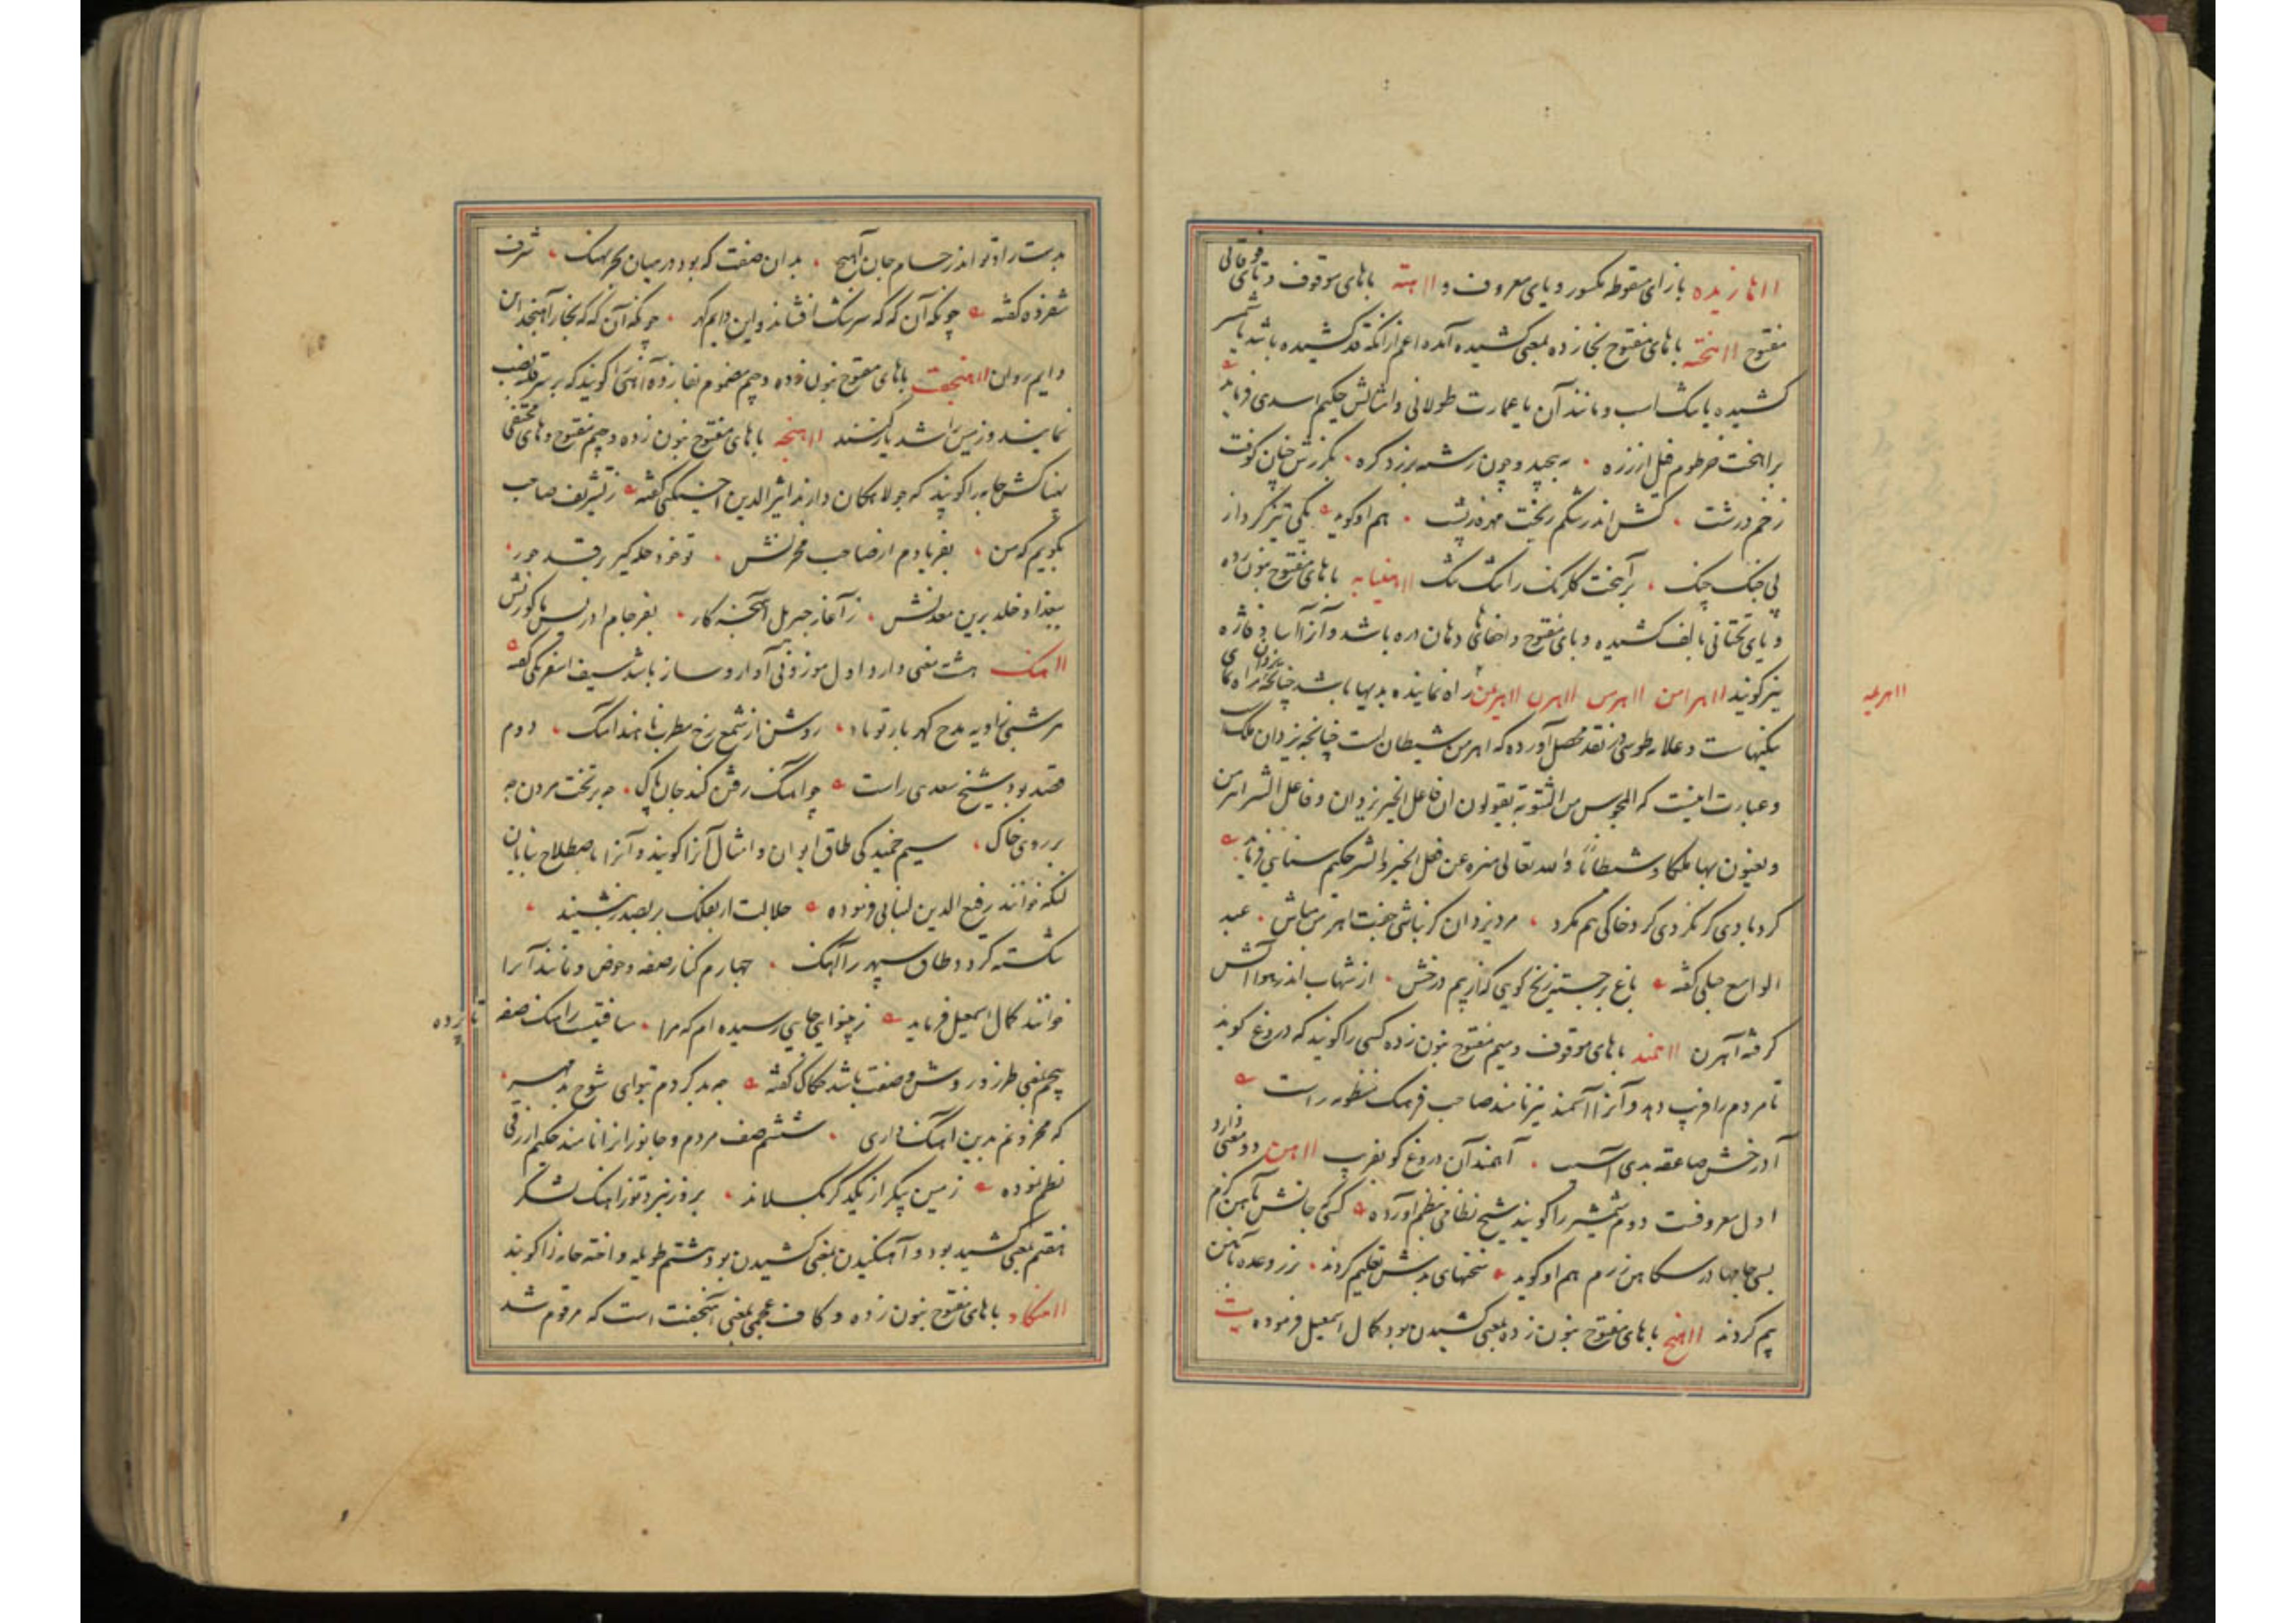 ااهازیده بازای منقوطه مکسور و یای معروف و ااهته باهای موقوف و تای فوقانی
مفتوح ااهخته باهای مفتوح بخا زده بمعنی کشیده آمده اعم ازانکه قد کشیده باشد یا شمشیر
کشیده یا تنک اسب و مانند آن یا عمارت طولانی و امثالش حکیم اسدی فرماید
براهخت خرطوم فیل ارزره بپیچید و چون رشته برزد کره بکرزش چنان کوفت
زخم درشت کش اندر شکم ریخت مهره ز پشت هم او کوید یکی تیز کرداز
پی جنک چنک برآهخت کلرنک را تنک تنک ااهنیابه باهای مفتوح بنون زده
و یای تحتانی بالف کشیده و بای مفتوح و اخفای ها دهان دره باشد و آنرا آسا و فاژه
نیز کویند ااهرامن ااهرس ااهرن ااهریمن راه نماینده بدیها باشد چنانچه یزدان راه نمای
اا‌هریمه
نیکیهاست و علامه طوسی در نقد محصل آورده که اهرمن شیطان است چنانچه یزدان ملک
و عبارت اینست که المجوس من الثنویة یقولون ان فاعل الخیر یزدان و فاعل الشر اهرمن
و یعنون بهما ملکا و شیطانا و الله تعالی منزه عن فعل الخیر و الشر حکیم سنایی فرماید
کرد بادی کر نکردی کرد خاکی هم مکرد مرد یزدان کر نباشی جفت اهرمن مباش عبد
الواسع جبلی کفته باغ برجستیز نخ کویی کزاز بیم درخش از شهاب اندر هوا آتش
کرفته آهرن ااهمند باهای موقوف و میم مفتوح بنون زده کسی را کویند که دروغ کوید
تا مردم را فریب دهد و آنرا آسمند نیز نامند صاحب فرهنک منظومه راست
آدرخش صاعقه بدی آسیب آهمند آن دروغ کو بفریب ااهن دو معنی دارد
اول معروفست دوم شمشیر را کویند شیخ نظامی بنظم آورده کسی جانش بآهن کزم
بسی جامها در سکاهن رزم هم او کوید سخنهای بدش تعلیم کردند بزر وعده بآهن
بیم کردند ااهنج باهای مفتوح بنون زده بمعنی کشیدن بود کمال اسمعیل فرموده بیت
بدست راد تو اندر حسام جان آهنج بدان صفت که بود در میان بحر نهنک شرف
شفروه کفته چونکه آن که که سرشک افشاند و این دایم کهر چونکه آن که که بخار آهنجد این
دایم روان ااهنجفت باهای مفتوح بنون زده و جیم مضموم بفا زده آهنی را کویند که بر سر قلبه نصب
نمایند و زمین را شد یار کنند ااهنجه باهای مفتوح بنون زده و جیم مفتوح و های مختفی
پهنا کش جامه را کویند که جولاهکان دارند اثیر الدین اخسیکتی کفته ز تشریف صاحب
بکویم که من بفریادم از صاحب مخزنش تو خود حله کیر رقد حور
ببغداد خلد برین معدنش ز آغاز جبریل آهنجه کار بفرجام ادریس ماکو زنش
ااهنک هشت معنی دارد اول موزونی آواز و ساز باشد سیف اسفرنکی کفته
هر شبی زاویه مدح کهر بار تو باد روشن از شمع رخ مطرب ناهید آهنک دوم
قصد بود شیخ سعدی راست چو آهنک رفتن کند جان پاک چه بر تخت مردن چه
بر روی خاک سیم خمیدکی طاق ایوان و امثال آنرا کویند و آنرا باصطلاح بنایان
لنکه خوانند رفیع الدین لنبانی فرموده جلالت ار بفلک بر بصدر بنشیند
شکسته کردد طاق سپهر را آهنک چهارم کنار صفه و حوض و مانند آنرا
خوانند کمال اسمعیل فرماید ز بینوایی جایی رسیده ام که مرا مسافتیست ز آهنک صفه
تا زده
پنجم بمعنی طرز و روش و صفت باشد کماک کفته چه بد کردم بتوای شوخ بد مهر
که محزونم بدین آهنک داری ششم صف مردم و جانوران را نامند حکیم ازرقی
نظم نموده زمین پیکر از یکدکر بکسلاند بروز نبرد تو ز آهنک لشکر
هفتم بمعنی کشید بود و آهنکیدن بمعنی کشیدن بود هشتم طویله و اخته خانه را کویند
ااهنکاد باهای مفتوح بنون زده و کاف عجمی بمعنی آهنجفت است که مرقوم شد